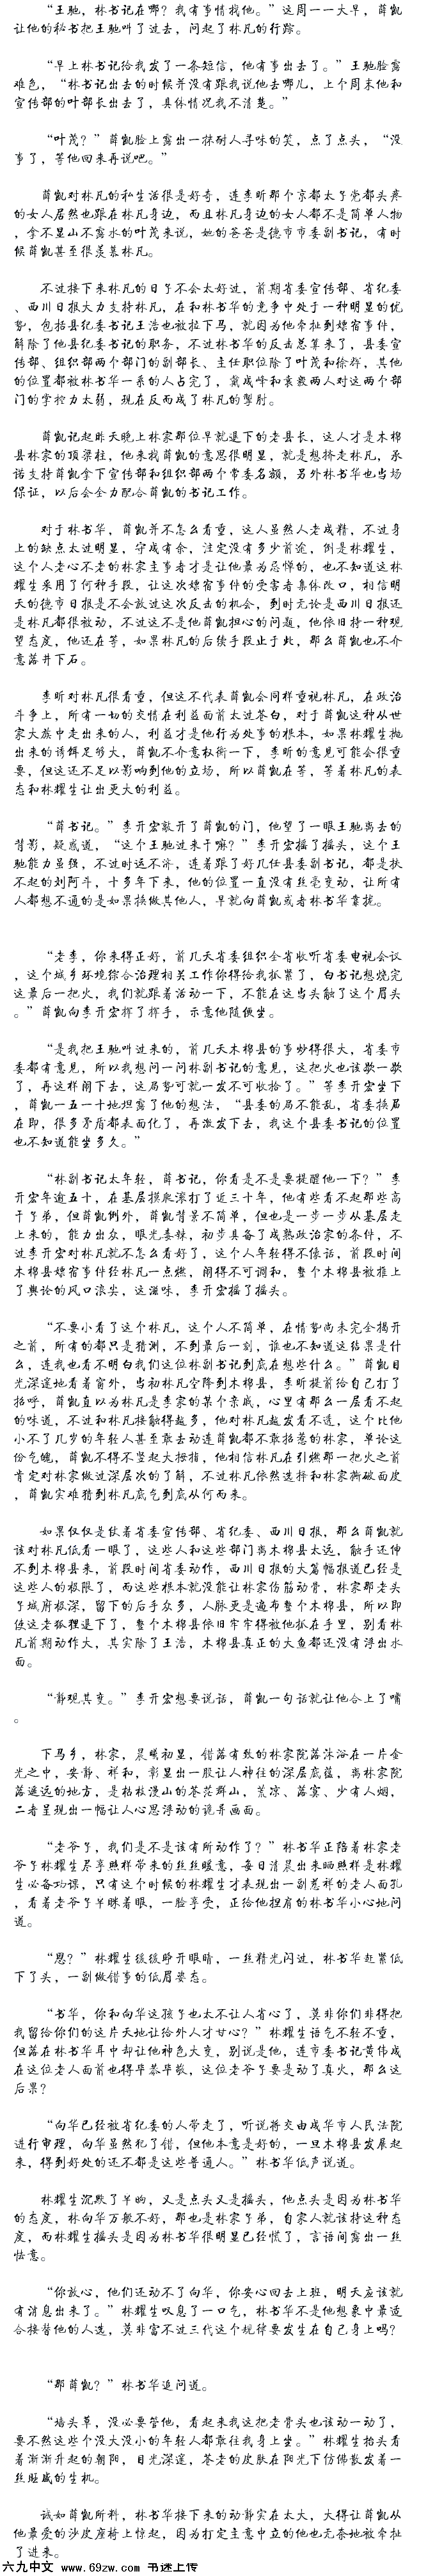 “王驰，林书记在哪？我有事情找他。”这周一一大早，薛凯
让他的秘书把王驰叫了过去，问起了林凡的行踪。
“早上林书记给我发了一条短信，他有事出去了。”王驰脸露
难色，“林书记出去的时候并没有跟我说他去哪儿，上个周末他和
宣传部的叶部长出去了，具体情况我不清楚。”
“叶茂？”薛凯脸上露出一抹耐人寻味的笑，点了点头，“没
事了，等他回来再说吧。”
薛凯对林凡的私生活很是好奇，连李昕那个京都太子党都头疼
的女人居然也跟在林凡身边，而且林凡身边的女人都不是简单人物
，拿不显山不露水的叶茂来说，她的爸爸是德市市委副书记，有时
候薛凯甚至很羡慕林凡。
不过接下来林凡的日子不会太好过，前期省委宣传部、省纪委
、西川日报大力支持林凡，在和林书华的竞争中处于一种明显的优
势，包括县纪委书记王浩也被拉下马，就因为他牵扯到嫖宿事件，
解除了他县纪委书记的职务，不过林书华的反击总算来了，县委宣
传部、组织部两个部门的副部长、主任职位除了叶茂和徐辉，其他
的位置都被林书华一系的人占完了，戴成峰和袁毅两人对这两个部
门的掌控力太弱，现在反而成了林凡的掣肘。
薛凯记起昨天晚上林家那位早就退下的老县长，这人才是木棉
县林家的顶梁柱，他来找薛凯的意思很明显，就是想挤走林凡，承
诺支持薛凯拿下宣传部和组织部两个常委名额，另外林书华也当场
保证，以后会全力配合薛凯的书记工作。
对于林书华，薛凯并不怎么看重，这人虽然人老成精，不过身
上的缺点太过明显，守成有余，注定没有多少前途，倒是林耀生，
这个人老心不老的林家主事者才是让他最为忌惮的，也不知道这林
耀生采用了何种手段，让这次嫖宿事件的受害者集体改口，相信明
天的德市日报是不会放过这次反击的机会，到时无论是西川日报还
是林凡都很被动，不过这不是他薛凯担心的问题，他依旧持一种观
望态度，他还在等，如果林凡的后续手段止于此，那么薛凯也不介
意落井下石。
李昕对林凡很看重，但这不代表薛凯会同样重视林凡，在政治
斗争上，所有一切的交情在利益面前太过苍白，对于薛凯这种从世
家大族中走出来的人，利益才是他行为处事的根本，如果林耀生抛
出来的诱饵足够大，薛凯不介意权衡一下，李昕的意见可能会很重
要，但这还不足以影响到他的立场，所以薛凯在等，等着林凡的表
态和林耀生让出更大的利益。
“薛书记。”李开宏敲开了薛凯的门，他望了一眼王驰离去的
背影，疑惑道，“这个王驰过来干嘛？”李开宏摇了摇头，这个王
驰能力虽强，不过时运不济，连着跟了好几任县委副书记，都是扶
不起的刘阿斗，十多年下来，他的位置一直没有丝毫变动，让所有
人都想不通的是如果换做其他人，早就向薛凯或者林书华靠拢。
“老李，你来得正好，前几天省委组织全省收听省委电视会议
，这个城乡环境综合治理相关工作你得给我抓紧了，白书记想烧完
这最后一把火，我们就跟着活动一下，不能在这当头触了这个眉头
。”薛凯向李开宏挥了挥手，示意他随便坐。
“是我把王驰叫过来的，前几天木棉县的事吵得很大，省委市
委都有意见，所以我想问一问林副书记的意见，这把火也该歇一歇
了，再这样闹下去，这局势可就一发不可收拾了。”等李开宏坐下
，薛凯一五一十地坦露了他的想法，“县委的局不能乱，省委换届
在即，很多矛盾都表面化了，再激发下去，我这个县委书记的位置
也不知道能坐多久。”
“林副书记太年轻，薛书记，你看是不是要提醒他一下？”李
开宏年逾五十，在基层摸爬滚打了近三十年，他有些看不起那些高
干子弟，但薛凯例外，薛凯背景不简单，但也是一步一步从基层走
上来的，能力出众，眼光毒辣，初步具备了成熟政治家的条件，不
过李开宏对林凡就不是怎么看好了，这个人年轻得不像话，前段时间
木棉县嫖宿事件经林凡一点燃，闹得不可调和，整个木棉县被推上
了舆论的风口浪尖，这滋味，李开宏摇了摇头。
“不要小看了这个林凡，这个人不简单，在情势尚未完全揭开
之前，所有的都只是猜测，不到最后一刻，谁也不知道这结果是什
么，连我也看不明白我们这位林副书记到底在想些什么。”薛凯目
光深邃地看着窗外，当初林凡空降到木棉县，李昕提前给自己打了
招呼，薛凯直以为林凡是李家的某个亲戚，心里有那么一层看不起
的味道，不过和林凡接触得越多，他对林凡越发看不透，这个比他
小不了几岁的年轻人甚至敢去动连薛凯都不敢招惹的林家，单论这
份气魄，薛凯不得不竖起大拇指，他相信林凡在引燃那一把火之前
肯定对林家做过深层次的了解，不过林凡依然选择和林家撕破面皮
，薛凯实难猜到林凡底气到底从何而来。
如果仅仅是仗着省委宣传部、省纪委、西川日报，那么薛凯就
该对林凡低看一眼了，这些人和这些部门离木棉县太远，触手还伸
不到木棉县来，前段时间省委动作，西川日报的大篇幅报道已经是
这些人的极限了，而这些根本就没能让林家伤筋动骨，林家那老头
子城府极深，留下的后手众多，人脉更是遍布整个木棉县，所以即
使这老狐狸退下了，整个木棉县依旧牢牢得被他抓在手里，别看林
凡前期动作大，其实除了王浩，木棉县真正的大鱼都还没有浮出水
面。
“静观其变。”李开宏想要说话，薛凯一句话就让他合上了嘴
。
下马乡，林家，晨曦初显，错落有致的林家院落沐浴在一片金
光之中，安静、祥和，彰显出一股让人神往的深层底蕴，离林家院
落遥远的地方，是枯枝漫山的苍茫群山，荒凉、落寞、少有人烟，
二者呈现出一幅让人心思浮动的诡异画面。
“老爷子，我们是不是该有所动作了？”林书华正陪着林家老
爷子林耀生尽享照样带来的丝丝暖意，每日清晨出来晒照样是林耀
生必备功课，只有这个时候的林耀生才表现出一副慈祥的老人面孔
，看着老爷子半眯着眼，一脸享受，正给他捏肩的林书华小心地问
道。
“恩？”林耀生缓缓睁开眼睛，一丝精光闪过，林书华赶紧低
下了头，一副做错事的低眉姿态。
“书华，你和向华这孩子也太不让人省心了，莫非你们非得把
我留给你们的这片天地让给外人才甘心？”林耀生语气不轻不重，
但落在林书华耳中却让他神色大变，别说是他，连市委书记黄伟成
在这位老人面前也得毕恭毕敬，这位老爷子要是动了真火，那么这
后果？
“向华已经被省纪委的人带走了，听说将交由成华市人民法院
进行审理，向华虽然犯了错，但他本意是好的，一旦木棉县发展起
来，得到好处的还不都是这些普通人。”林书华低声说道。
林耀生沉默了半晌，又是点头又是摇头，他点头是因为林书华
的态度，林向华万般不好，那也是林家子弟，自家人就该持这种态
度，而林耀生摇头是因为林书华很明显已经慌了，言语间露出一丝
怯意。
“你放心，他们还动不了向华，你安心回去上班，明天应该就
有消息出来了。”林耀生叹息了一口气，林书华不是他想象中最适
合接替他的人选，莫非富不过三代这个规律要发生在自己身上吗？
“那薛凯？”林书华追问道。
“墙头草，没必要管他，看起来我这把老骨头也该动一动了，
要不然这些个没大没小的年轻人都敢往我身上坐。”林耀生抬头看
着渐渐升起的朝阳，目光深邃，苍老的皮肤在阳光下仿佛散发着一
丝旺盛的生机。
诚如薛凯所料，林书华接下来的动静实在太大，大得让薛凯从
他最爱的沙皮座椅上惊起，因为打定主意中立的他也无奈地被牵扯
了进来。
六九中文 www.69zw.com 书迷上传